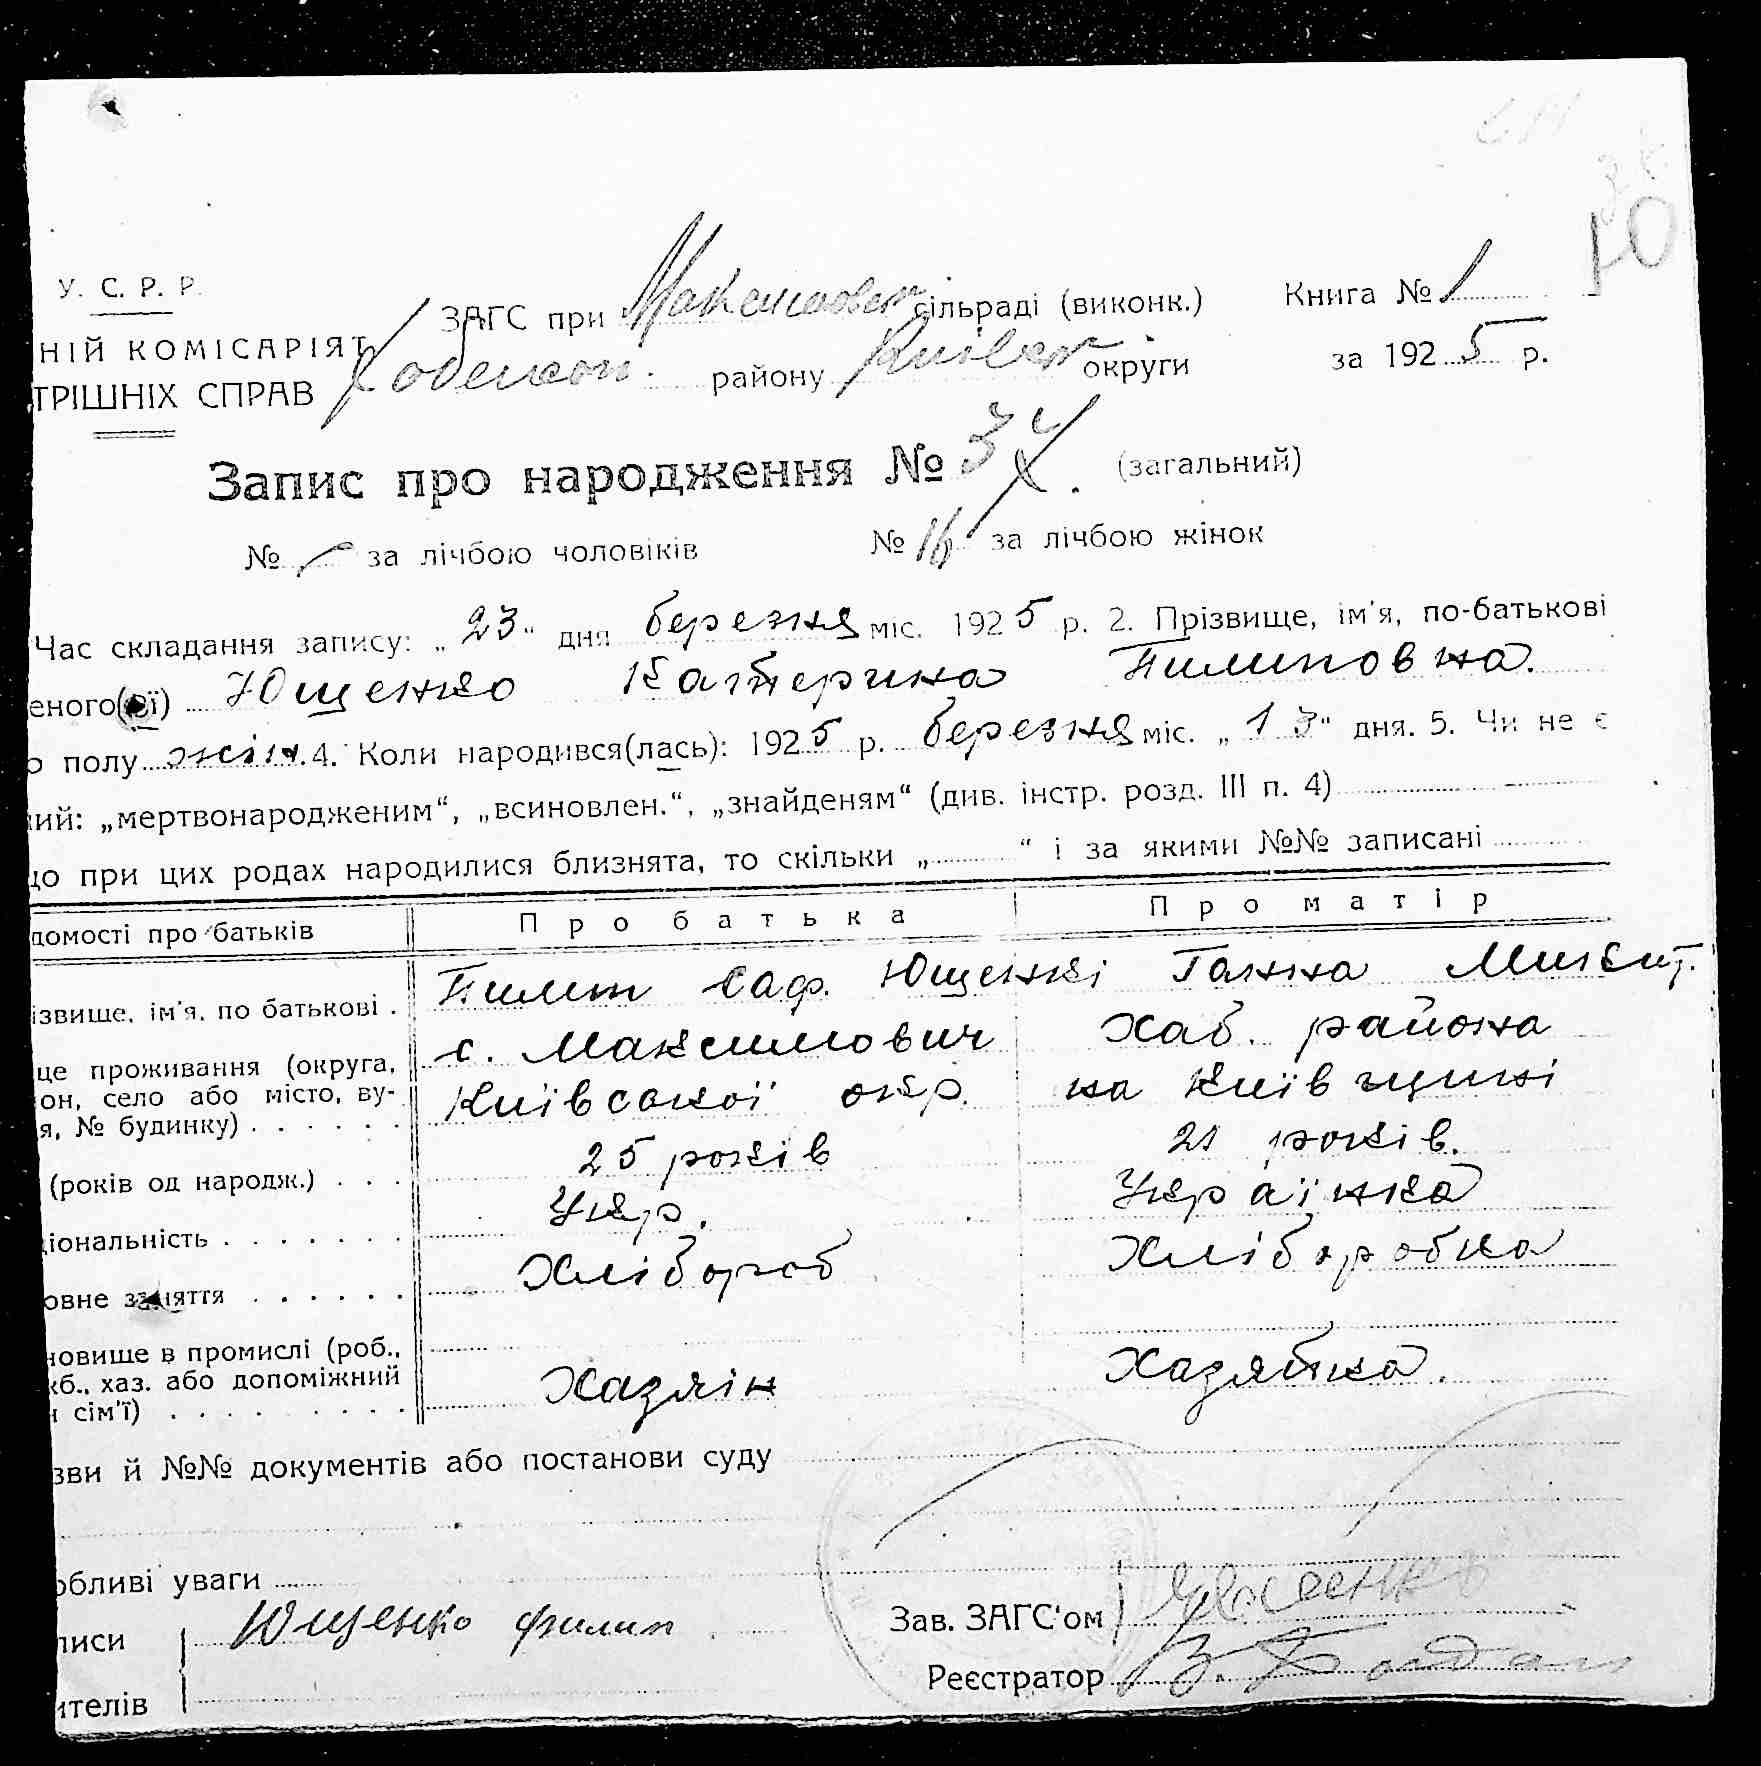 У. С. Р. Р.
ЗАГС при сільраді (виконк.) Книга № 1
НІЙ КОМІСАРІЯТ
району округи за 1925 р.
ТРІШНІХ СПРАВ
Запис про народження № 37. (загальний)
№ за лічбою чоловіків № 16 за лічбою жінок
Час складання запису: „23“ дня березня міс. 1925 р. 2. Прізвище, ім'я, по-батькові
еного( ї) Ющенко Катерина Пилиповна.
о полу жін. 4. Коли народився(лась): 1925 р. березня міс. „13“ дня. 5. Чи не є
ий: „мертвонародженим“, „всиновлен.“, „знайденям“ (див. інстр. розд. III п. 4)
що при цих родах народилися близнята, то скільки „ “ і за якими №№ записані
домості про батьків Про батька Про матір
ізвище, ім'я, по батькові . Пилип Саф. Ющенкі Ганна Микит.
це проживання (округа, с. Максимович Хаб. района
он, село або місто, ву-
я, № будинку) . . . . . . Київської окр. на Київщині
(років од народж.) . . . 25 років 21 років.
ціональність . . . . . . . Укр. Українка
овне заняття . . . . . . Хлібороб Хліборобка
новище в промислі (роб.,
жб., хаз. або допоміжний
н сім'ї) . . . . . . . . . Хазяін Хазяйка.
зви й №№ документів або постанови суду
обливі уваги
писи Ющенко Филип Зав. ЗАГС'ом
ителів Реєстратор